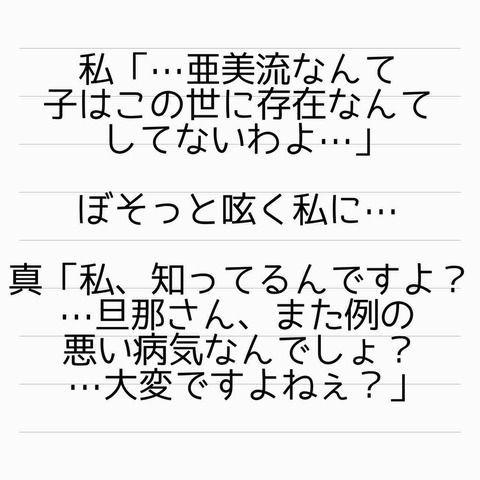 私「…亜美流なんて
子はこの世に存在なんて
してないわよ…」
ぼそっと呟く私に…
真「私、知ってるんですよ？
…旦那さん、また例の
悪い病気なんでしょ？
…大変ですよねぇ？」